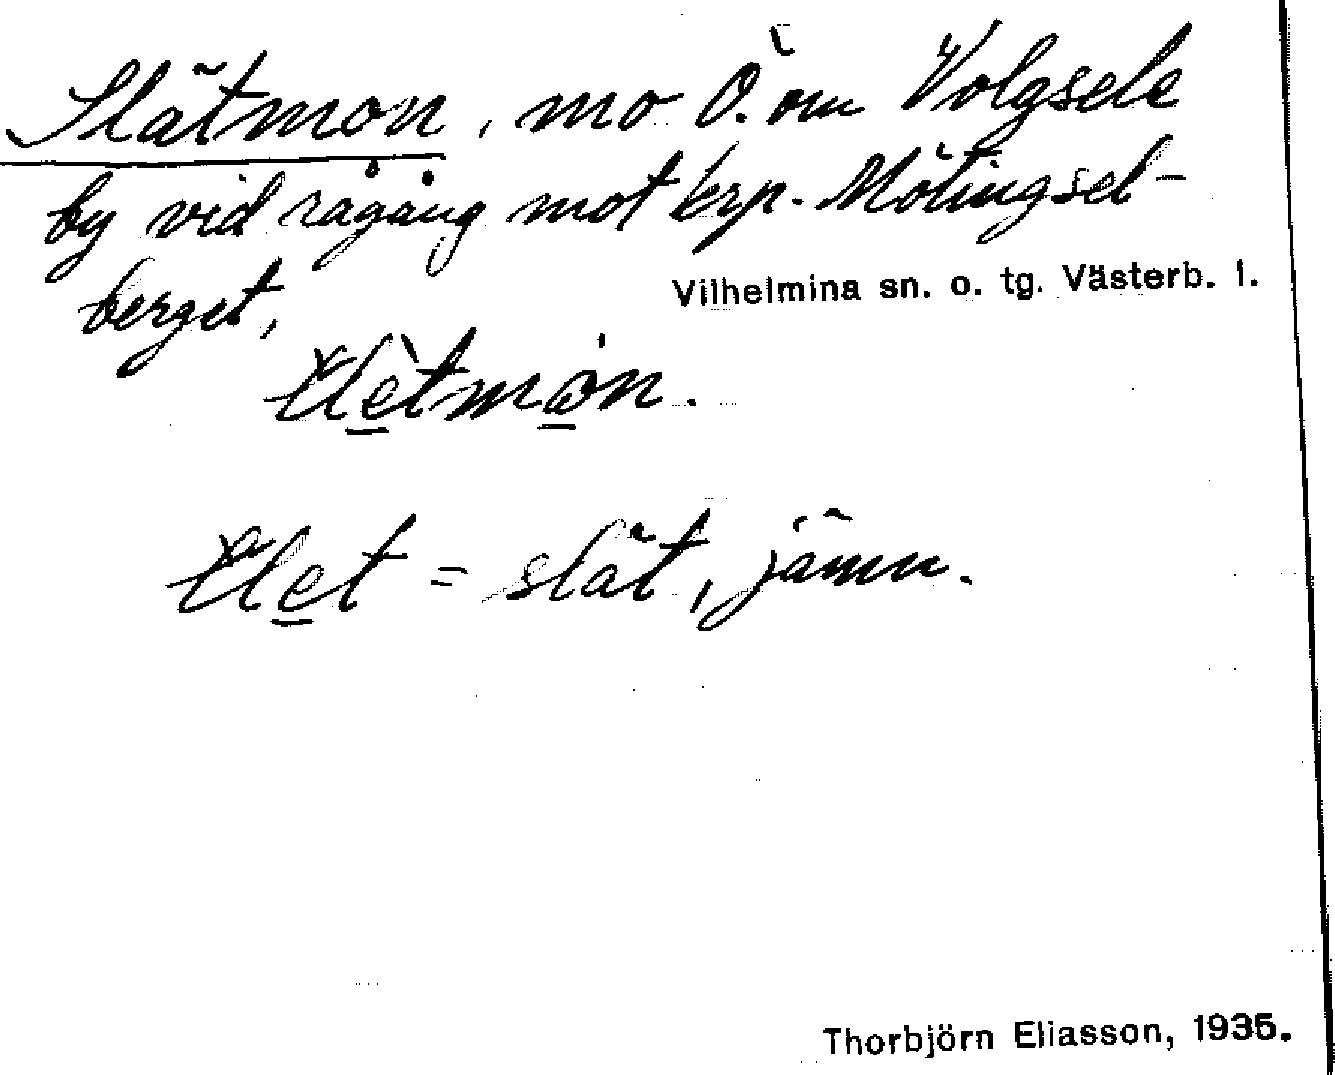 Slätmon, mo Ö. om Volgsele
by vid rågång mot krp. Mötingsel-
berget,
Vilhelmina sn. o. tg. Västerb. l.
= slät, jämn.
Thorbjörn Eliasson, 1935.